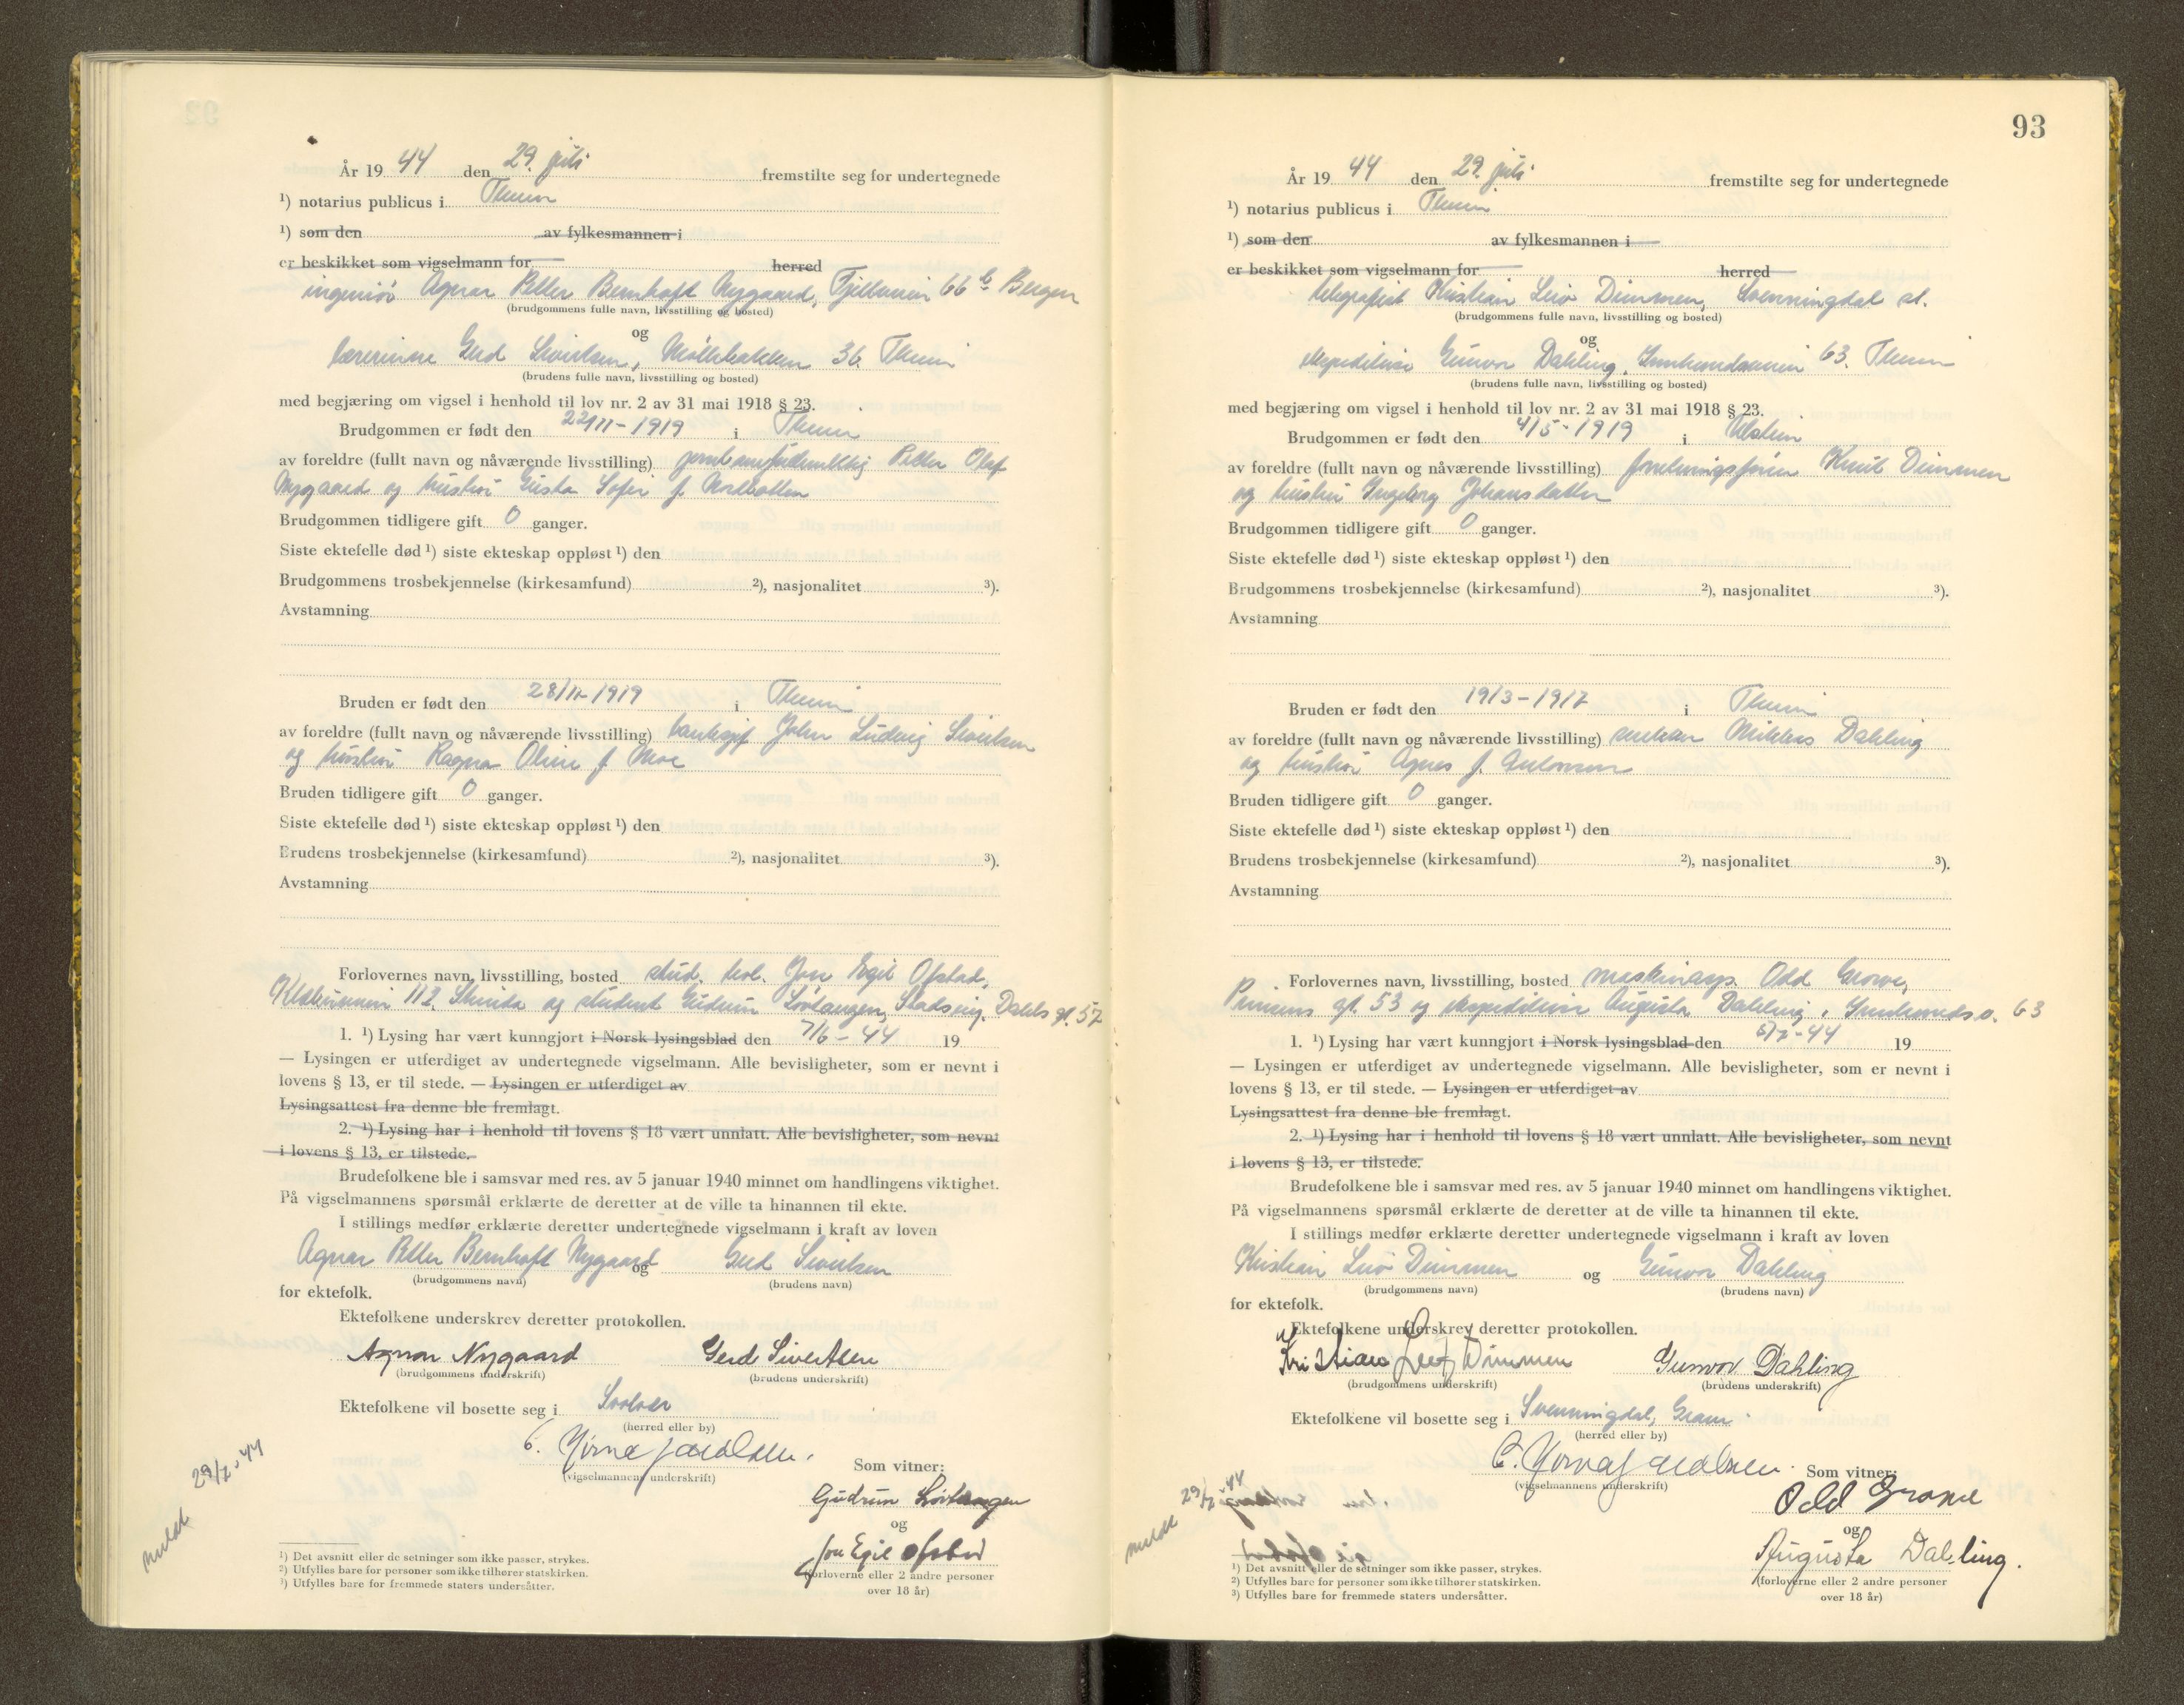 År 19 44 den 29. juli fremstilte seg for undertegnede
¹) notarius publicus i Theim
¹) som den av fylkesmannen i
er beskikket som vigselmann for herred
ingeniør Agnar Petter Bernhoft Nygaard, Fjellveien 66 b Bergen
(brudgommens fulle navn, livsstilling og bosted)
og
lærerinne Gerd Sivertsen, Møllebakken 36. Theim
(brudens fulle navn, livsstilling og bosted)
med begjæring om vigsel i henhold til lov nr. 2 av 31 mai 1918 § 23.
Brudgommen er født den 22/11-1919 i Theim
av foreldre (fullt navn og nåværende livsstilling) Petter Olaf
Nygaard og hustru Gusta Sofie f.
Brudgommen tidligere gift 0 ganger.
Siste ektefelle død ¹) siste ekteskap oppløst ¹) den
Brudgommens trosbekjennelse (kirkesamfund) ²), nasjonalitet ³).
Avstamning
Bruden er født den 28/11-1919 i Theim
av foreldre (fullt navn og nåværende livsstilling) banksjef John Ludvig Sivertsen
og hustru Ragna Oline f. Moe
Bruden tidligere gift 0 ganger.
Siste ektefelle død ¹) siste ekteskap oppløst ¹) den
Brudens trosbekjennelse (kirkesamfund) ²), nasjonalitet ³).
Avstamning
Forlovernes navn, livsstilling, bosted stud. Jon Egil Ofstad,
112, Strinda og student Gudrun Løvtangen, Stadsing. Dahls gt. 57
1. ¹) Lysing har vært kunngjort i Norsk lysingsblad den 7/6-44 19
— Lysingen er utferdiget av undertegnede vigselmann. Alle bevisligheter, som er nevnt i
lovens § 13, er til stede. — Lysingen er utferdiget av
Lysingsattest fra denne ble fremlagt.
2. ¹) Lysing har i henhold til lovens § 18 vært unnlatt. Alle bevisligheter, som nevnt
i lovens § 13, er tilstede.
Brudefolkene ble i samsvar med res. av 5 januar 1940 minnet om handlingens viktighet.
På vigselmannens spørsmål erklærte de deretter at de ville ta hinannen til ekte.
I stillings medfør erklærte deretter undertegnede vigselmann i kraft av loven
Agnar Petter Bernhoft Nygaard og Gerd Sivertsen
(brudgommens navn) (brudens navn)
for ektefolk.
Ektefolkene underskrev deretter protokollen.
Agnar Nygaard Gerd Sivertsen
(brudgommens underskrift) (brudens underskrift)
Ektefolkene vil bosette seg i Svolvær
(herred eller by)
C. Yrvna Jacobsen.
(vigselmannens underskrift)
Som vitner:
Gudrun Løvtangen
og
Jon Egil Ofstad
(forloverne eller 2 andre personer
over 18 år)
meldt 29/7-44
¹) Det avsnitt eller de setninger som ikke passer, strykes.
²) Utfylles bare for personer som ikke tilhører statskirken.
³) Utfylles bare for fremmede staters undersåtter.
93
År 19 44 den 29. juli fremstilte seg for undertegnede
¹) notarius publicus i Theim
¹) som den av fylkesmannen i
er beskikket som vigselmann for herred
telegrafist Kristian Leio Dimmen, Svenningdal st.
(brudgommens fulle navn, livsstilling og bosted)
og
ekspeditrise Gunvor Dahling, Innherredsveien 63. Theim
(brudens fulle navn, livsstilling og bosted)
med begjæring om vigsel i henhold til lov nr. 2 av 31 mai 1918 § 23.
Brudgommen er født den 4/5-1919 i Ulstein
av foreldre (fullt navn og nåværende livsstilling) forretningsfører Knut Dimmen
og hustru Ingeborg Johansdatter
Brudgommen tidligere gift 0 ganger.
Siste ektefelle død ¹) siste ekteskap oppløst ¹) den
Brudgommens trosbekjennelse (kirkesamfund) ²), nasjonalitet ³).
Avstamning
Bruden er født den 19/3-1917 i Theim
av foreldre (fullt navn og nåværende livsstilling) Dahling
og hustru Agnes f.
Bruden tidligere gift 0 ganger.
Siste ektefelle død ¹) siste ekteskap oppløst ¹) den
Brudens trosbekjennelse (kirkesamfund) ²), nasjonalitet ³).
Avstamning
Forlovernes navn, livsstilling, bosted maskinasp. Odd Grove,
Prinsens gt. 53 og ekspeditrise Augusta Dahling, Innherreds v. 63
1. ¹) Lysing har vært kunngjort i Norsk lysingsblad den 5/7-44 19
— Lysingen er utferdiget av undertegnede vigselmann. Alle bevisligheter, som er nevnt i
lovens § 13, er til stede. — Lysingen er utferdiget av
Lysingsattest fra denne ble fremlagt.
2. ¹) Lysing har i henhold til lovens § 18 vært unnlatt. Alle bevisligheter, som nevnt
i lovens § 13, er tilstede.
Brudefolkene ble i samsvar med res. av 5 januar 1940 minnet om handlingens viktighet.
På vigselmannens spørsmål erklærte de deretter at de ville ta hinannen til ekte.
I stillings medfør erklærte deretter undertegnede vigselmann i kraft av loven
Kristian Leio Dimmen og Gunvor Dahling
(brudgommens navn) (brudens navn)
for ektefolk.
Ektefolkene underskrev deretter protokollen.
Kristian Leif Dimmen Gunvor Dahling
(brudgommens underskrift) (brudens underskrift)
Ektefolkene vil bosette seg i Svenningdal, Grane
(herred eller by)
C. Yrvna Jacobsen.
(vigselmannens underskrift)
Som vitner:
Odd Grove
og
Augusta Dahling.
(forloverne eller 2 andre personer
over 18 år)
meldt 29/7-44
¹) Det avsnitt eller de setninger som ikke passer, strykes.
²) Utfylles bare for personer som ikke tilhører statskirken.
³) Utfylles bare for fremmede staters undersåtter.